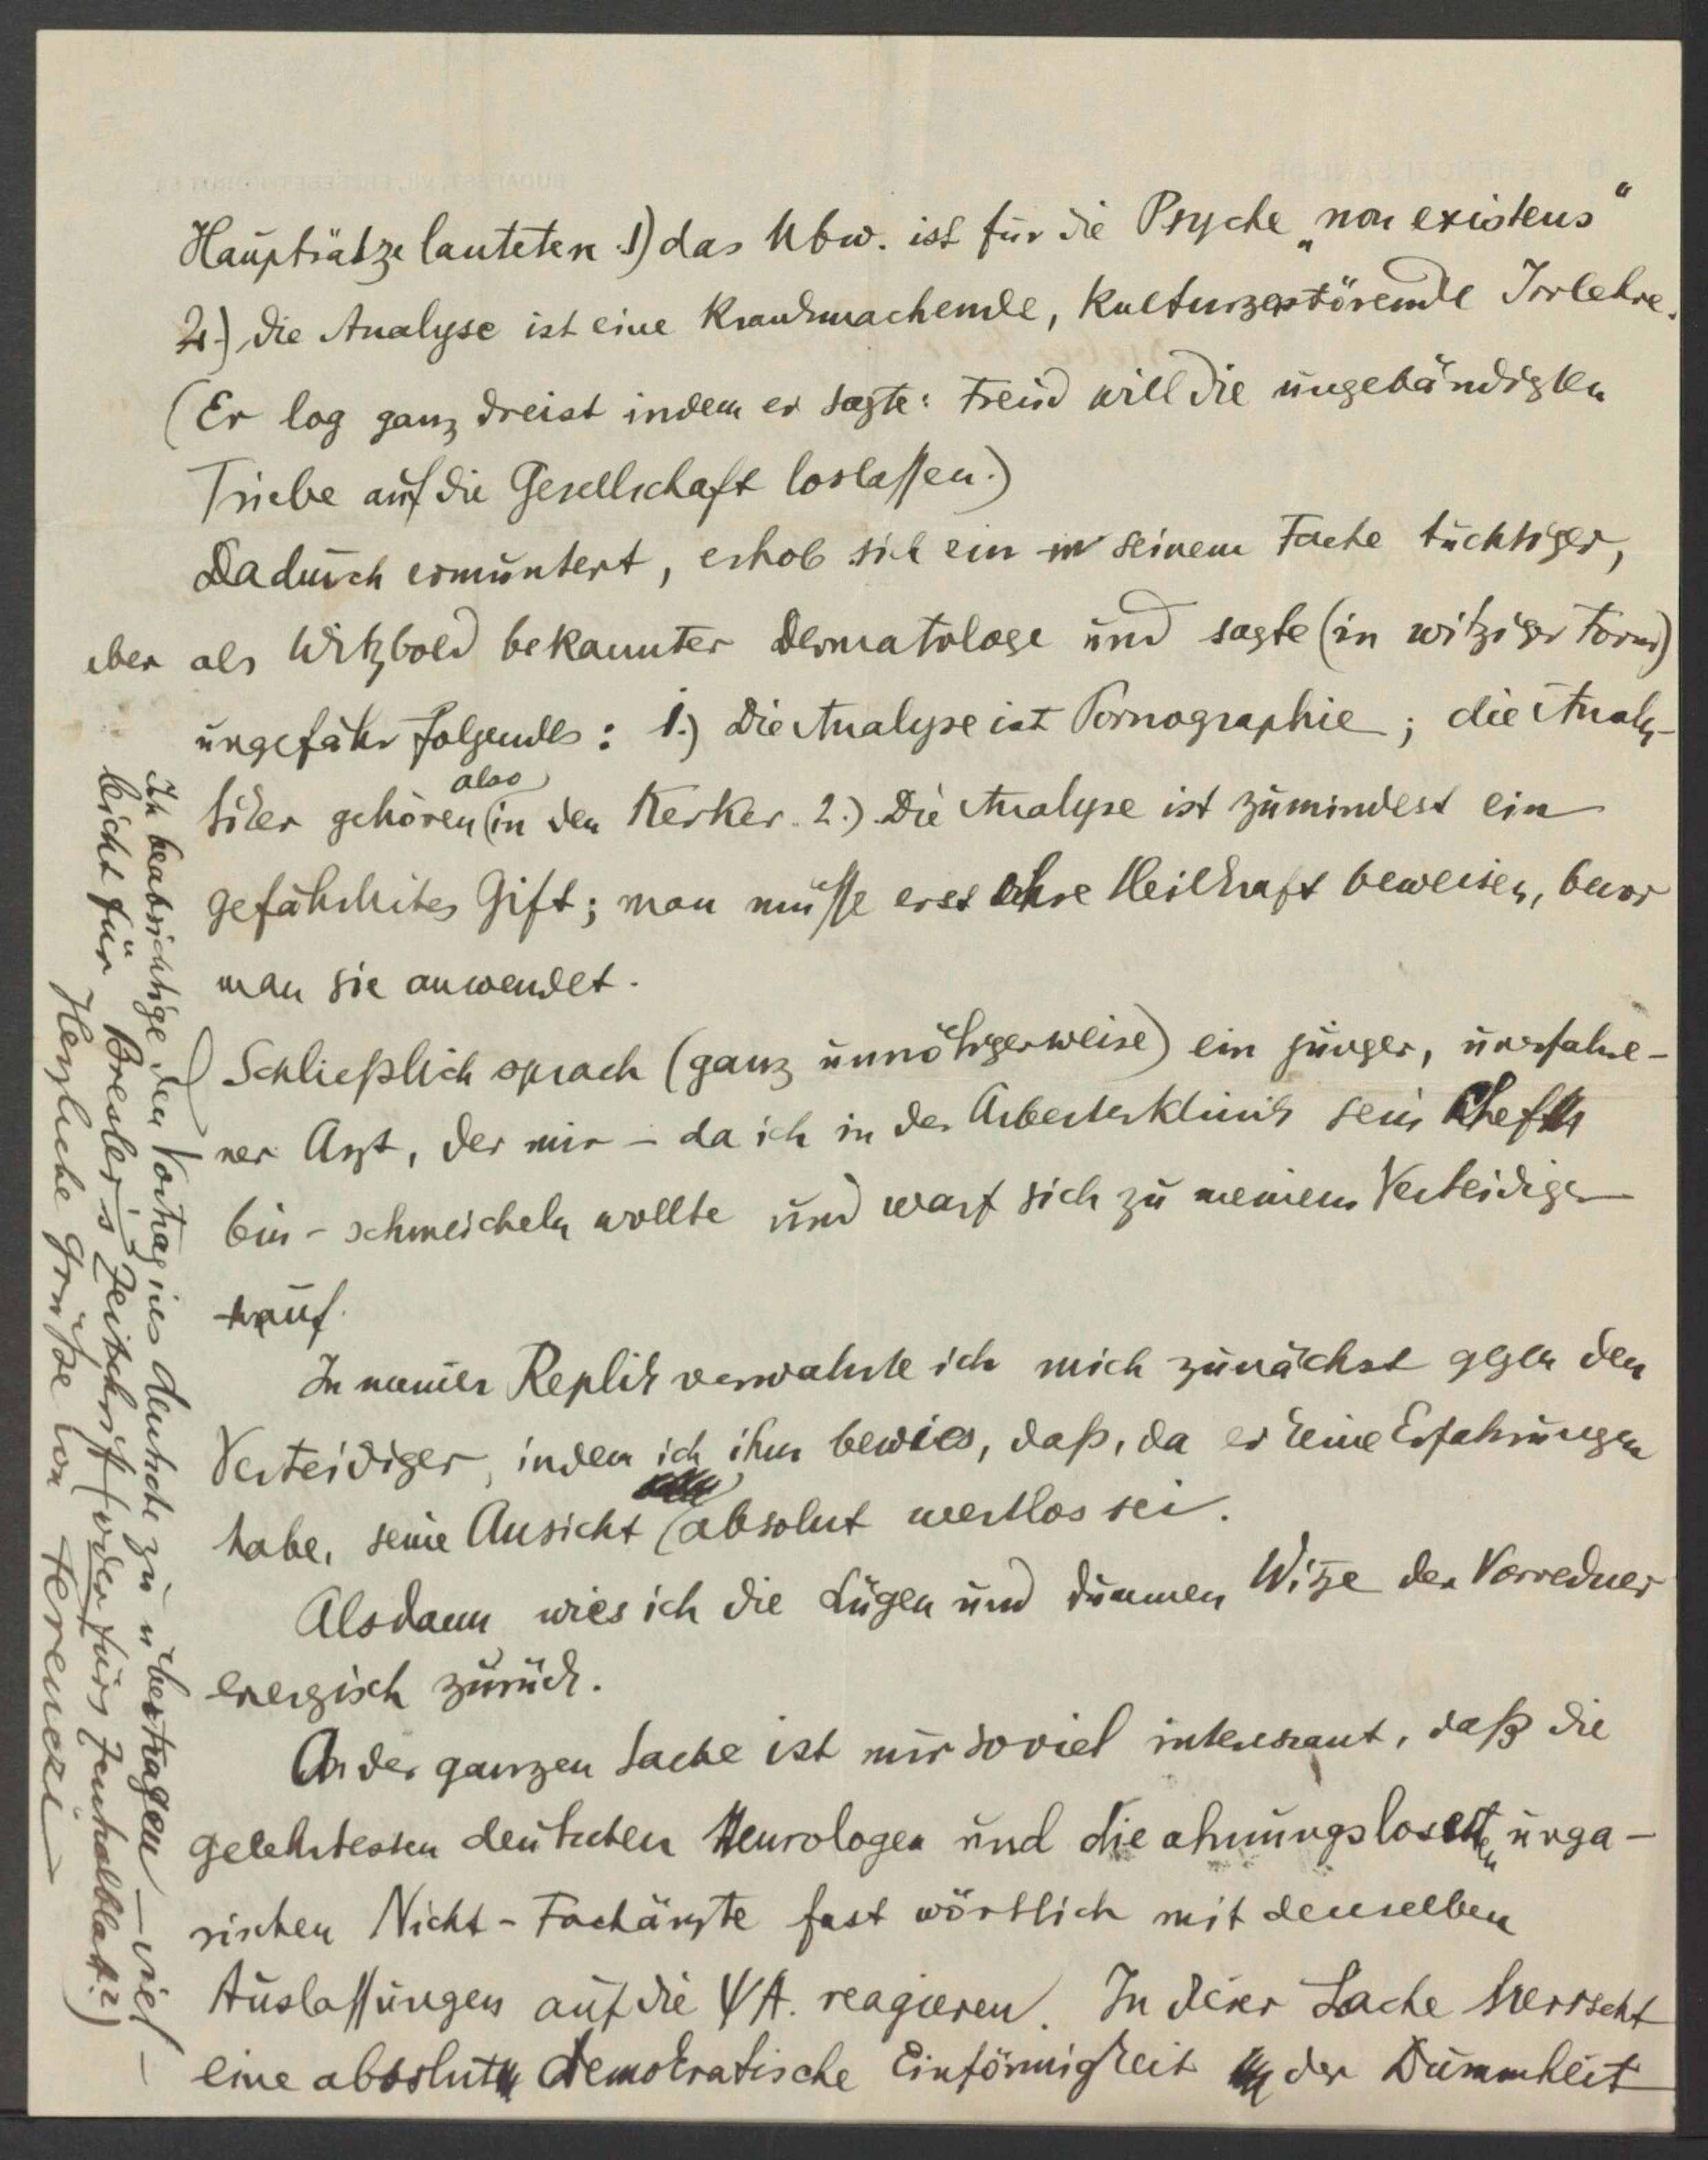 Hauptsätze lauteten 1) das Ubw. ist für die Psyche „non existens“
2.) die Analyse ist eine Krankmachende, Kulturzerstörende Irrlehre.
(Er log ganz dreist indem er sagte: Freud will die ungebändigten
Triebe auf die Gesellschaft loslassen.)
Dadurch ermuntert, erhob sich ein in seinem Fache tüchtiger,
aber als Witzbold bekannter Dermatologe und sagte (in witziger Form)
ungefähr folgendes: 1.) Die Analyse ist Pornographie; die Analy-
tiker gehören also in den Kerker. 2.) Die Analyse ist zumindest ein
gefährliches Gift; man müsse erst ihre Heilkraft beweisen, bevor
man sie anwendet.
Schließlich sprach (ganz unnötigerweise) ein junger, unerfahre-
ner Arzt, der mir – da ich in der Arbeiterklinik sein Chef
bin – schmeicheln wollte und warf sich zu meinem Verteidiger
auf.
In meiner Replik verwahrte ich mich zunächst gegen den
Verteidiger, indem ich ihm bewies, daß, da er keine Erfahrungen
habe, seine Ansicht absolut wertlos sei.
Alsdann wies ich die Lügen und dummen Witze der Vorredner
energisch zurück.
An der ganzen Sache ist mir soviel interessant, daß die
gelehrtesten deutschen Neurologen und die ahnungslosesten unga-
rischen Nicht-Fachärzte fast wörtlich mit denselben
Auslassungen auf die ΨA. reagieren. In dieser Sache herrscht
eine absolut demokratische Einförmigkeit der Dummheit
Ich beabsichtige den Vortrag ins deutsche zu übertragen – viel-
leicht für Bresler's Zeitschrift (oder fürs Zentralblatt?)
Herzliche Grüße von Ferenczi